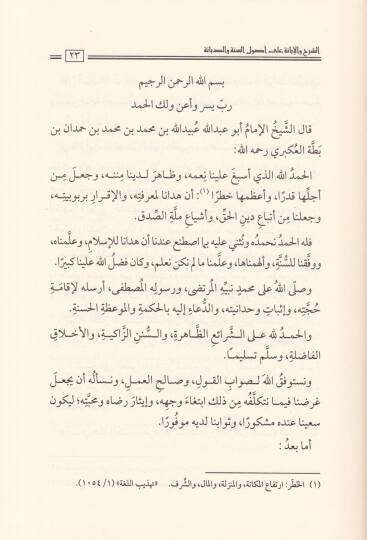 الشرح والإبانة على أصول السنة والديانة
٢٣
بسم الله الرحمن الرحيم
ربّ يسر وأعن ولك الحمد
قال الشَّيخُ الإمامُ أبو عبدالله عُبيدالله بن محمد بن محمد بن حمدان بن
بَطَّة العُكبري رحمه الله:
الحمدُ لله الذي أسبغَ علينا نِعمه، وظاهَرَ لدينا مِننه، وجعلَ مِن
أجلِّها قدرًا، وأعظمها خطرًا (١): أن هدانا لمعرفتِه، والإقرارِ بربوبيته،
وجعلنا مِن أتباعِ دينِ الحقِّ، وأشياعِ ملَّةِ الصِّدق.
فله الحمدُ نحمدُه ونُثني عليه بما اصطنع عندنا أن هدانا للإسلامِ، وعلَّمناه،
ووفَّقنا للسُّنَّةِ، وألهمناها، وعلَّمنا ما لم نكن نعلم، وكان فضلُ الله علينا كبيرًا.
وصلَّى اللهُ على محمدٍ نبيِّهِ المُرتضى، ورسولِه المُصطفى، أرسله لإقامةِ
حُجَّتِه، وإثباتِ وحدانيته، والدُّعاءِ إليه بالحكمةِ والموعظةِ الحسنةِ.
والحمدُ لله على الشَّرائع الظَّاهرةِ، والسُّننِ الزَّاكيةِ، والأخلاقِ
الفاضلةِ، وسلَّم تسليمًا.
ونستوفقُ اللهَ لصوابِ القولِ، وصالحِ العملِ، ونسألُه أن يجعلَ
غرضنا فيما نتكلَّفُه مِن ذلك ابتغاءَ وجهِه، وإيثارَ رضاه ومحبَّتِه؛ ليكون
سعينا عنده مشكورًا، وثوابنا لديه موفُورًا.
أما بعدُ:
(١) الخطَر: ارتفاع المكانة، والمنزلة، والمال، والشَّرف. «تهذيب اللغة» (١/ ١٠٥٤).